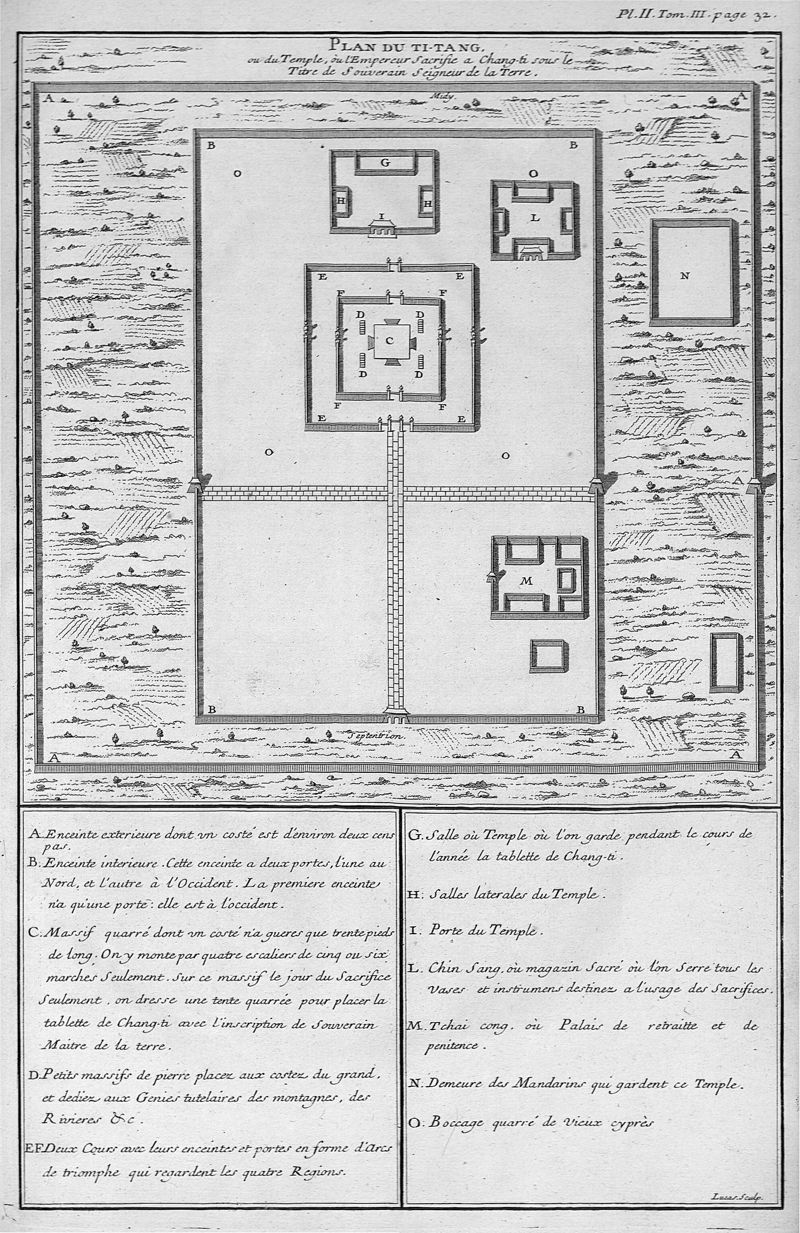 Pl. II. Tom. III. page 32.
PLAN DU TI-TANG.
ou du Temple, où l'Empereur Sacrifie a Chang-ti sous le
Titre de Souverain Seigneur de la Terre.
A
Midy.
A
B
B
O
G
O
H
H
I
L
E
E
N
F
F
D
D
C
D
D
F
F
E
E
O
O
A
M
B
B
Septentrion
A
A
A. Enceinte exterieure dont vn costé est d'environ deux cens
pas.
B. Enceinte interieure. Cette enceinte a deux portes, l'une au
Nord, et l'autre à l'Occident. La premiere enceinte
n'a qu'une porte: elle est à l'occident.
C. Massif quarré dont vn costé n'a gueres que trente pieds
de long. On y monte par quatre escaliers de cinq ou six
marches Seulement. Sur ce massif le jour du Sacrifice
Seulement, on dresse une tente quarrée pour placer la
tablette de Chang-ti avec l'inscription de Souverain
Maitre de la terre.
D. Petits massifs de pierre placez aux costez du grand,
et dediez aux Genies tutelaires des montagnes, des
Rivieres &c.
EF. Deux Cours avec leurs enceintes et portes en forme d'Arcs
de triomphe qui regardent les quatre Regions.
G. Salle où Temple où l'on garde pendant le cours de
l'année la tablette de Chang-ti.
H. Salles laterales du Temple.
I. Porte du Temple.
L. Chin Sang, où magazin Sacré où l'on Serre tous les
Vases et instrumens destinez a l'usage des Sacrifices.
M. Tchai cong. où Palais de retraitte et de
penitence.
N. Demeure des Mandarins qui gardent ce Temple.
O. Boccage quarré de Vieux cyprès
Lucas. Sculp.